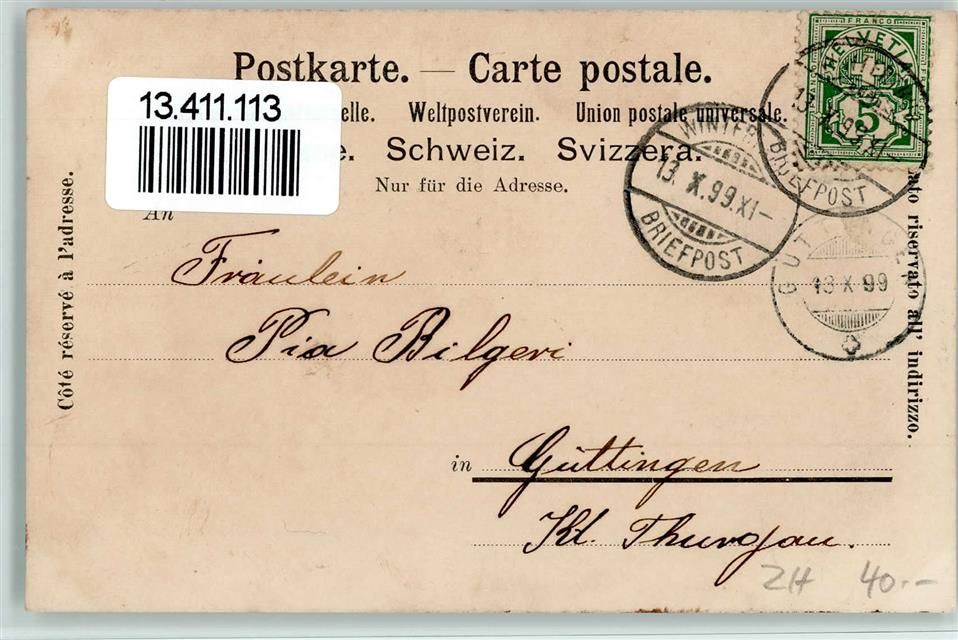 Postkarte. — Carte postale.
13.411.113
elle. Weltpostverein. Union postale universale.
e. Schweiz. Svizzera.
Nur für die Adresse.
An
Fräulein
Pia Bilgeri
in Güttingen
Kt. Thurgau.
Côté réservé à l'adresse.
ato riservato all' indirizzo.
FRANCO
HELVETIA
5
WINTER
13. X. 99. XI –
BRIEFPOST
BRIEFPOST
13 X 99
ZH 40.–